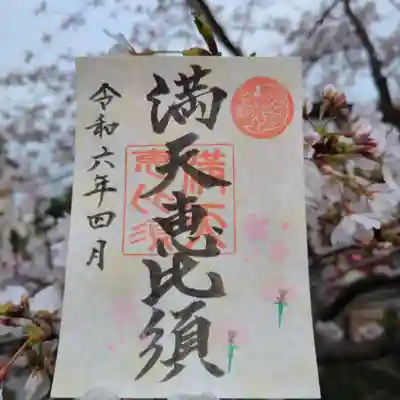 満天恵比須
令和六年四月
満天
恵比須